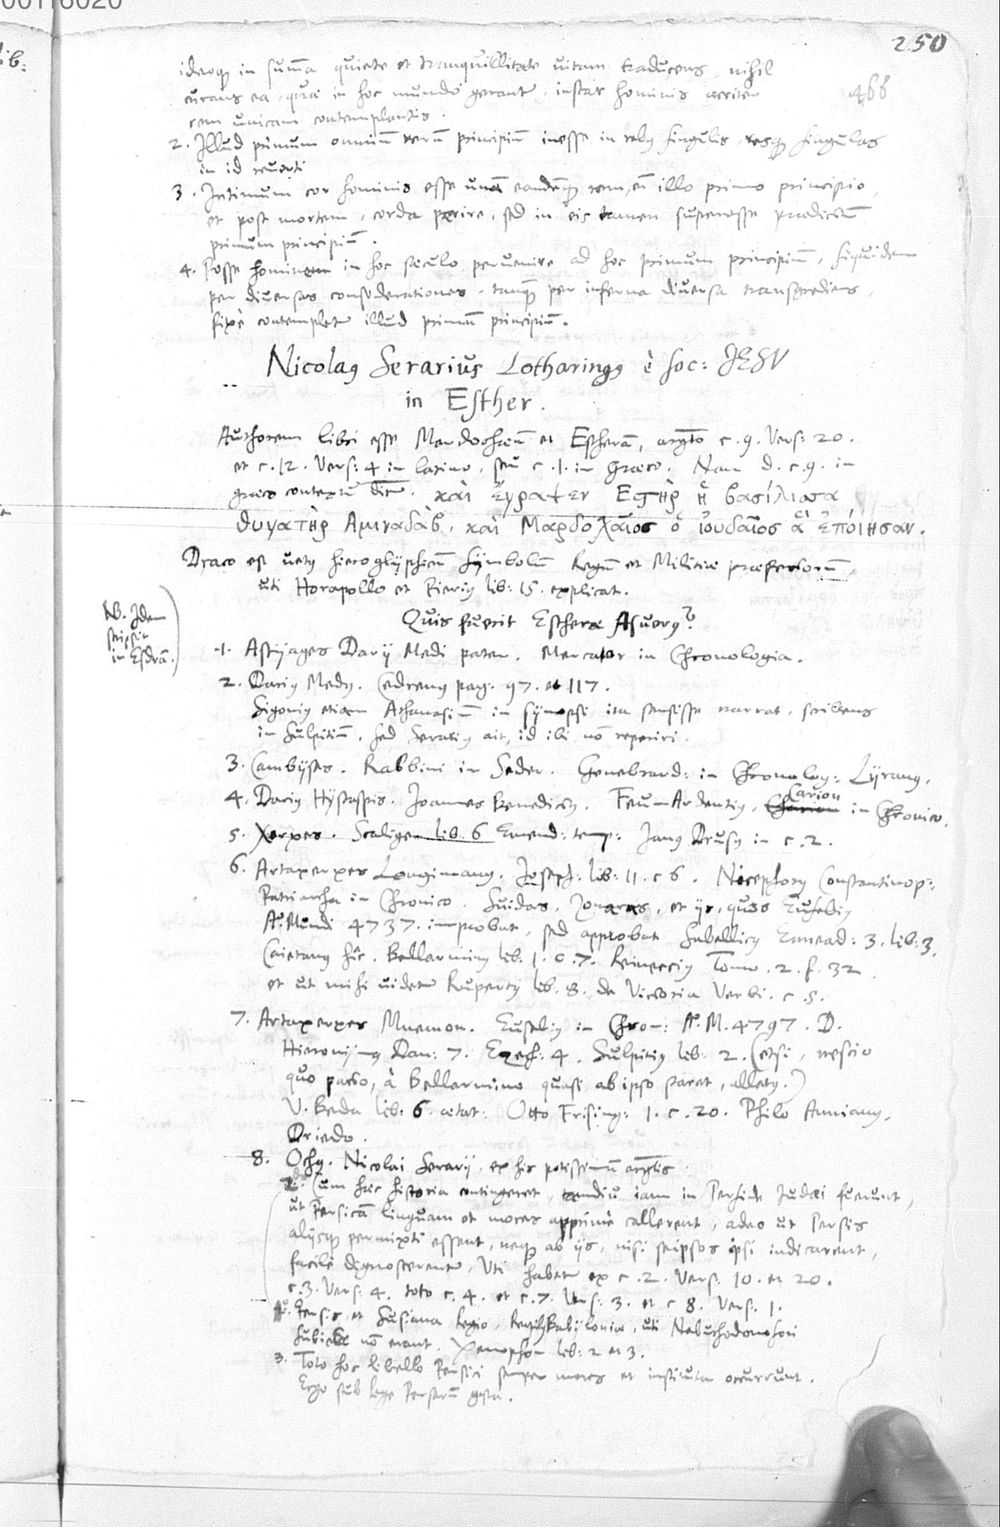 00116020
250
ib:
468
ideoq; in summa quiete et tranquillitate vitam traducens, nihil
curans ea, quae in hoc mundo gerantur, instar hominis
rem unicam contemplantis.
2. Illud primum omnium rerum principium inesse in rebus singulis, resq; singulas
in id reverti
3. Intimum cor hominis esse unam eandemq; rem, cum illo primo principio,
et post mortem, corda perire, sed in eis tamen superesse praedictum
primum principium.
4. Posse hominem in hoc saeculo pervenire ad hoc primum principium, siquidem
per diversas considerationes, tanquam per inferna diversa transgrediens,
fixe contempletur illud primum principium.
Nicolaus Serarius Lotharingus è Soc: JESV
in Esther.
Authorem libri esse Mardochaeum et Estheram, argto c. 9. Vers: 20.
et c. 12. Vers: 4 in latino, seu c. 1. in graeco. Nam d. c. 9. in
graeco contextu dicitur. καὶ ἔγραψεν Εσθὴρ ἡ βασίλισσα
θυγατὴρ Αμιναδὰβ, καὶ Μαρδοχαῖος ὁ ἰουδαῖος ἃ ἐποίησαν.
Draco est vetus hieroglyphicum symbolum Regum et Militiae praefectorum,
uti Horapollo et Pierius lib: 15. explicat.
Quis fuerit Estherae Asuerus?
NB. Idem
scripsit
in Esdram.
1. Astyages Darij Medi pater. Mercator in Chronologia.
2. Darius Medus. Cedrenus pag: 97. et 117.
Sigonius etiam Athanasium in synopsi ita sensisse narrat, scribens
in Sulpitium, sed Serarius ait, id ibi non reperiri.
3. Cambyses. Rabbini in Seder. Genebrard: in Chronolog: Lyranus.
4. Darius Hystaspis. Joannes Benedictus. FeuArdentius, Carion in Chronico.
5. Xerxes. Scaliger lib. 6 Emend: temp: Janus Drusus in c. 2.
6. Artaxerxes Longimanus. Joseph: lib: 11. c 6. Nicephorus Constantinop:
Patriarcha in Chronico. Suidas, Zonaras, et ijs, quos Eusebius
A: Mundi 4737. improbat, sed approbat Sabellicus Ennead: 3. lib: 3.
Caietanus hic. Bellarminus lib. 1. c. 7. Reineccius Tomo. 2. f. 32.
et uti mihi videtur Rupertus lib. 8. de Victoria Verbi. c. 5.
7. Artaxerxes Mnemon. Eusebius in Chron: A. M. 4797. D.
Hieronymus Dan: 7. Ezech: 4. Sulpitius lib: 2. (etsi, nescio
quo pacto, à Bellarmino quasi ab ipso staret, allatus.)
V. Beda lib: 6 aetat: Otto Frising: 1. c. 20. Philo Annianus.
Driedo.
8. Ochus. Nicolai Serarij, ex his potissimum argtis.
2. Cum haec historia contingeret, tamdiu iam in Perside Judaei fuerunt,
ut Persicam linguam et mores apprime callerent, adeo ut Persis
alijsq; permixti essent, neq; ab ijs, nisi seipsos ipsi indicarent,
facile dignoscerentur, Uti habetur ex c. 2. Vers: 10. et 20.
c. 3. Vers: 4. toto c. 4. et c. 7. Vers: 3. et c 8. Vers: 1.
1. Persis et Susiana Regio, Regibus Babyloniae, uti Nabuchodonosori
subiectae non erant. Xenophon lib: 2 et 3.
3. Toto hoc libello Persici semper mores et instituta occurrunt.
Ergo sub lege Persarum gesta.